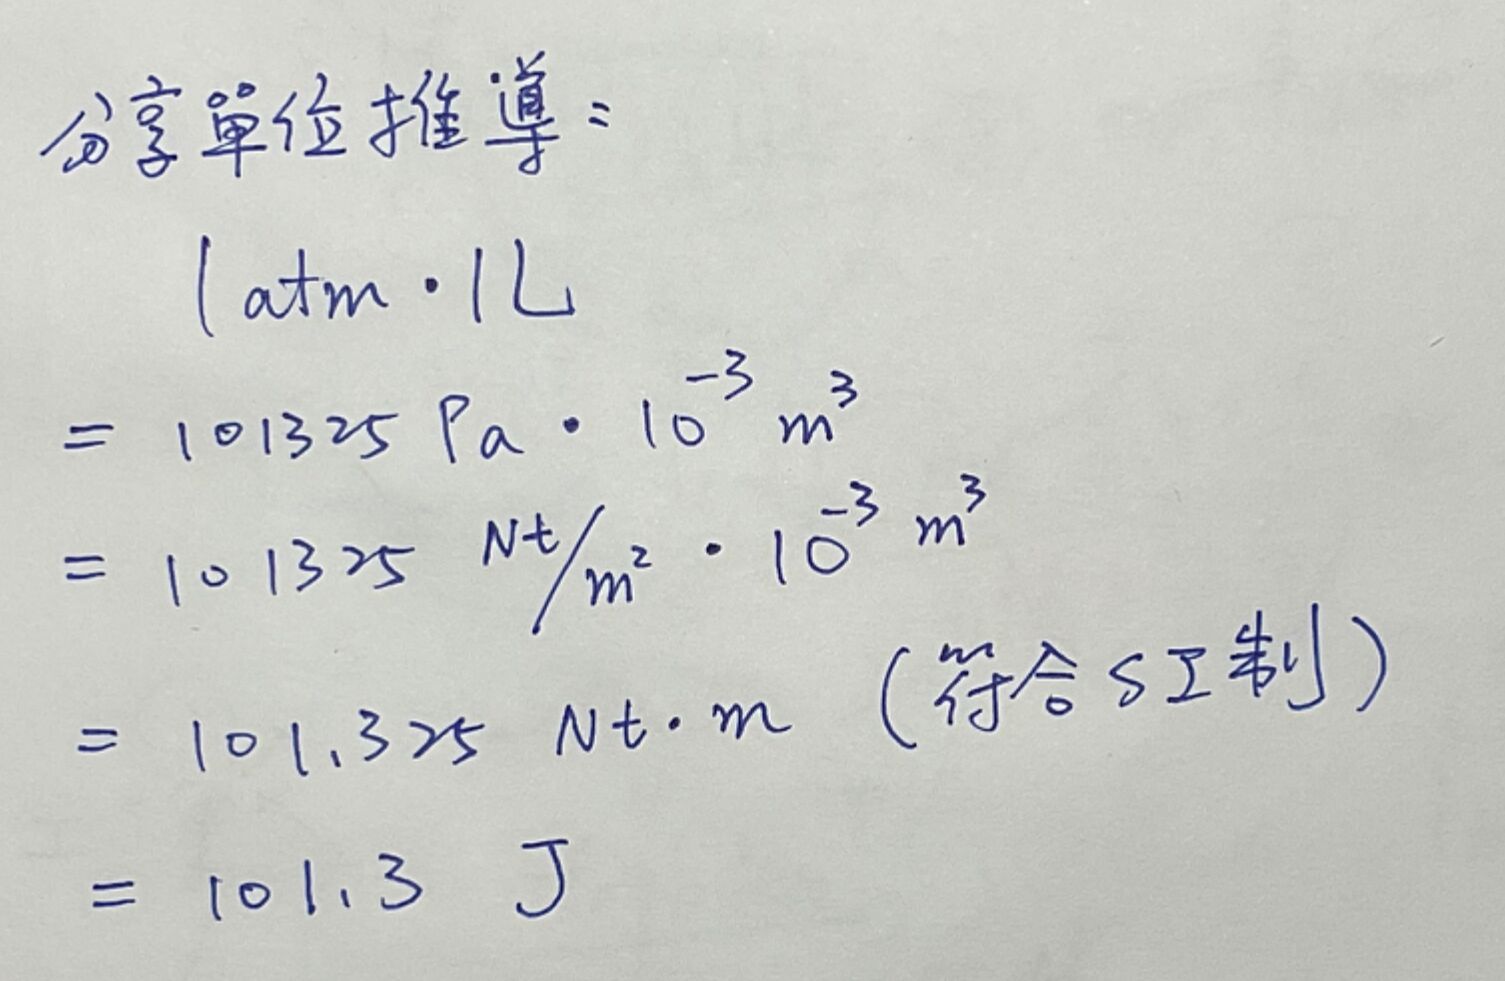 分享單位推導：
1 atm · 1L
= 101325 Pa · 10⁻³ m³
= 101325 Nt/m² · 10⁻³ m³
= 101.325 Nt · m (符合SI制)
= 101.3 J